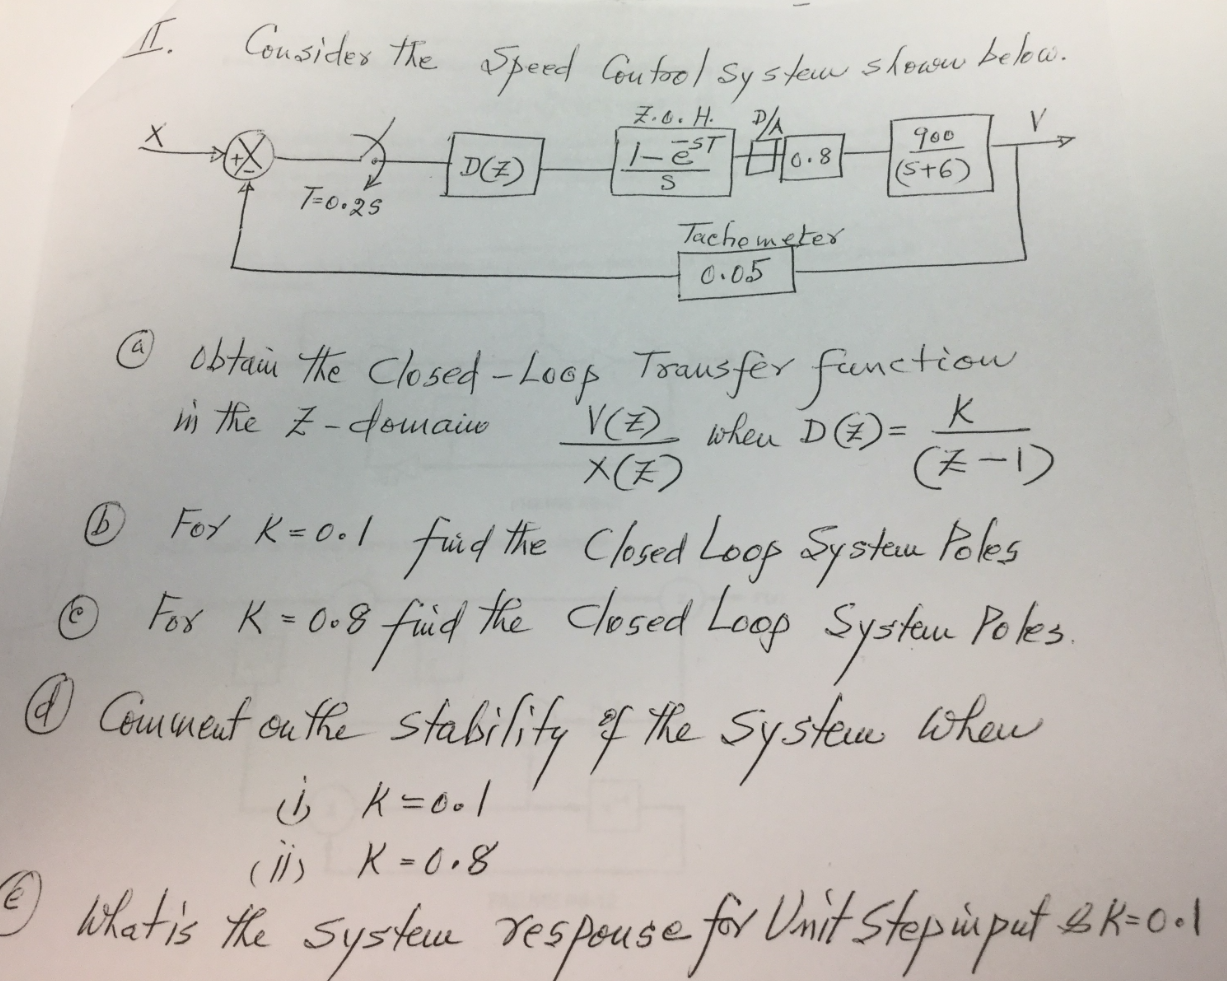 II. Consider the Speed Control System shown below.
X
+
-
T=0.2S
D(Z)
Z.O.H.
1-e^-ST
S
D/A
0.8
900
(S+6)
V
Tachometer
0.05
(a) Obtain the Closed-Loop Transfer function
in the Z-domain V(Z)/X(Z) when D(Z)= K/(Z-1)
(b) For K=0.1 find the Closed Loop System Poles
(c) For K=0.8 find the Closed Loop System Poles.
(d) Comment on the stability of the System when
(i) K=0.1
(ii) K=0.8
(e) What is the system response for Unit Step input & K=0.1